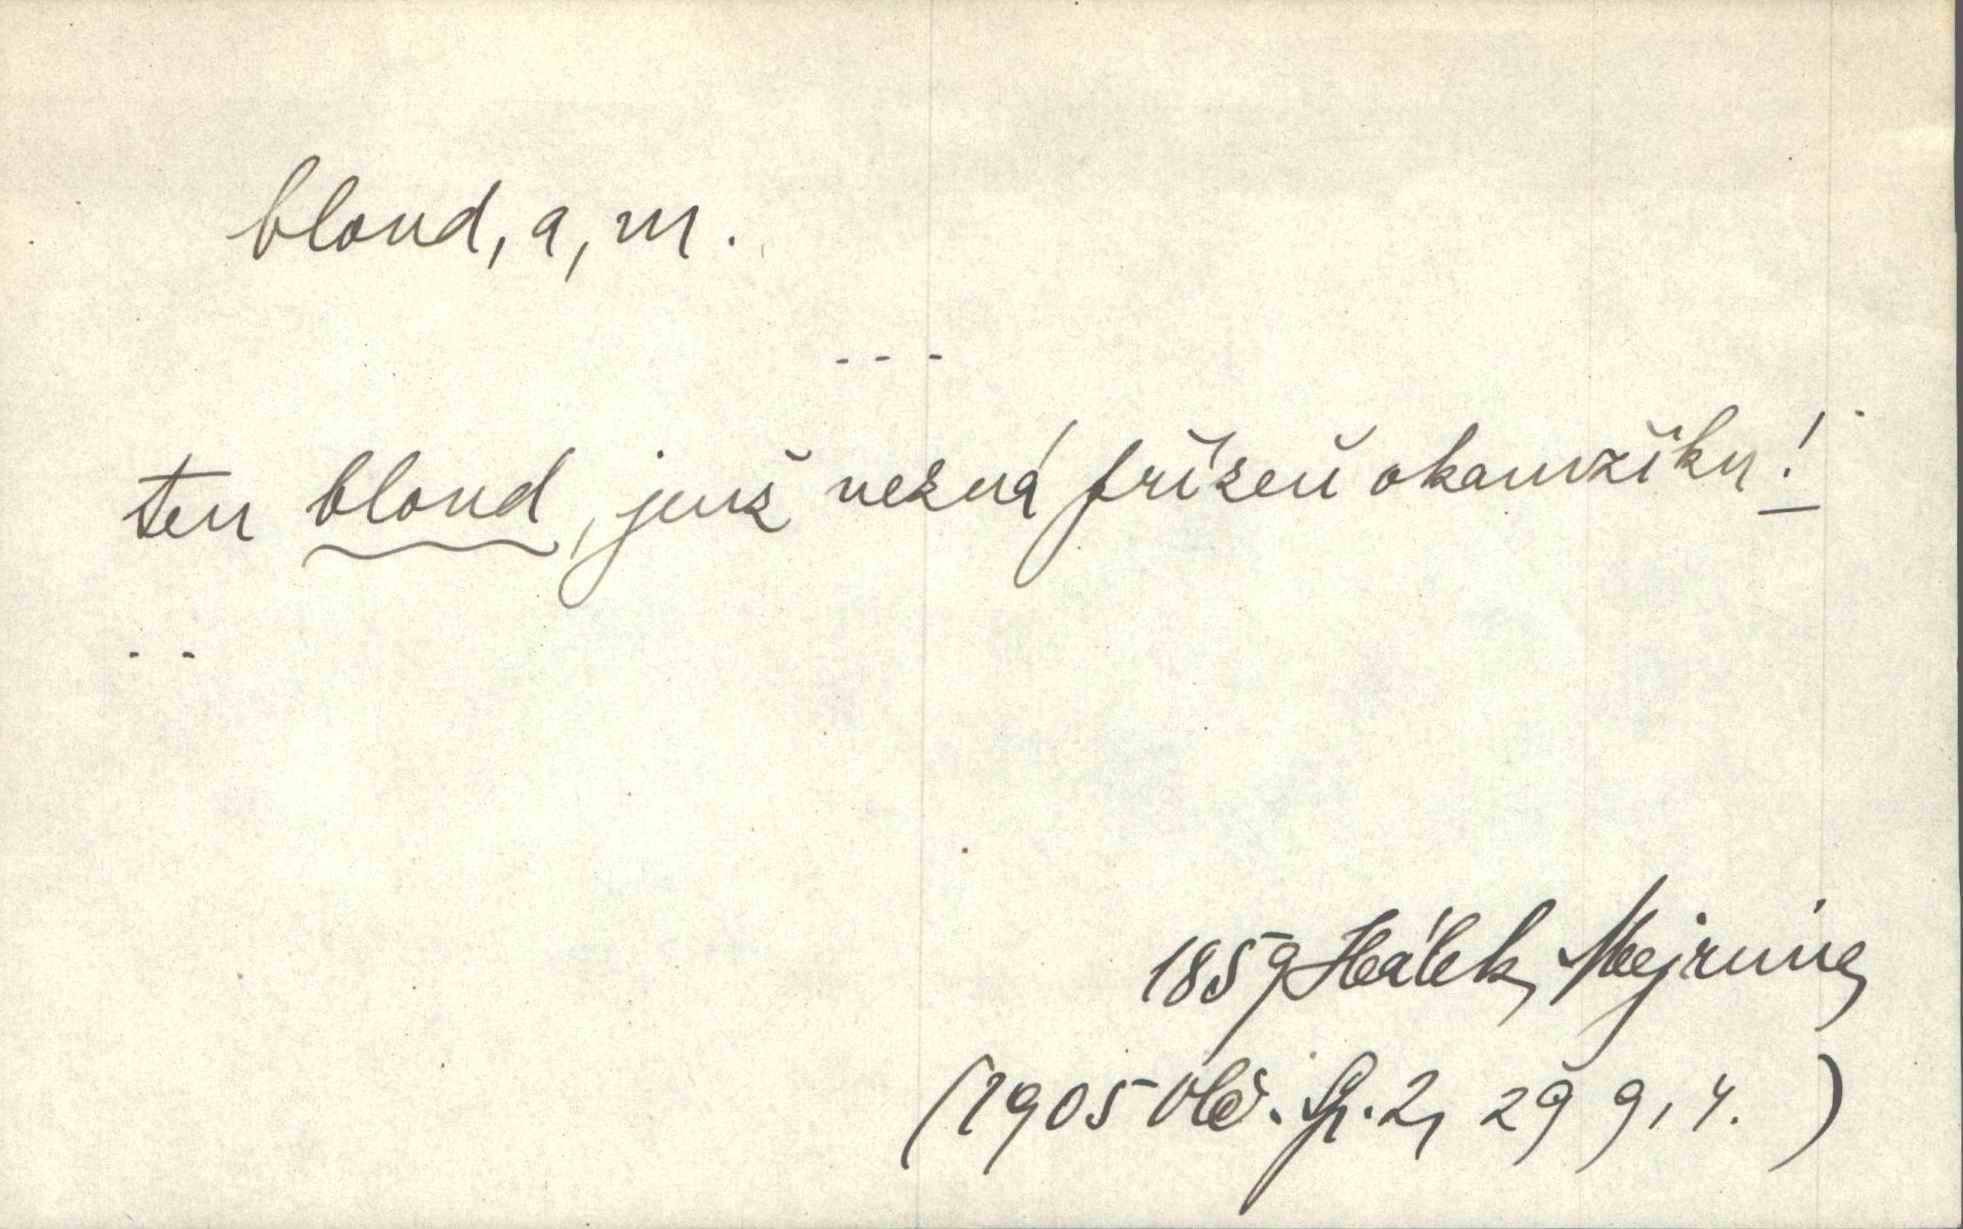 bloud, a, m.
---
ten bloud, jenž nezná přízeň okamžiku!
--
1859 Hálek, Mejrima,
(1905 Vyb. sp. 2, 299, 4. )